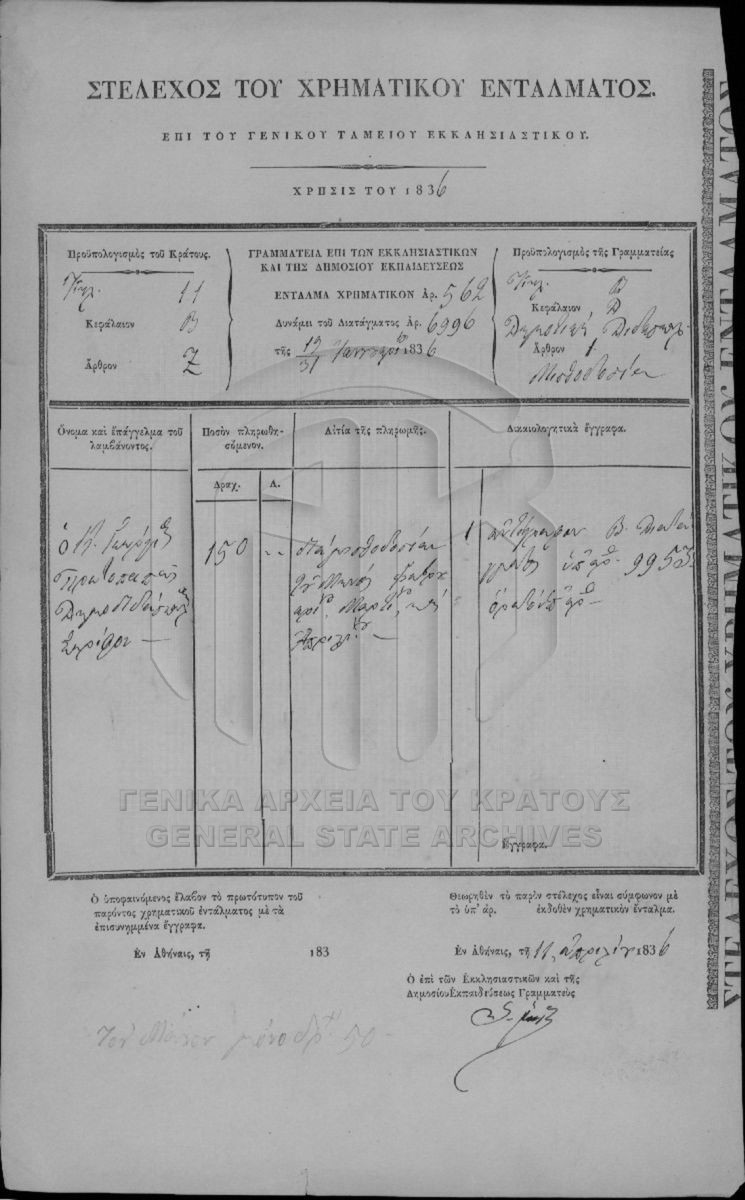 ΣΤΕΛΕΧΟΣ ΤΟΥ ΧΡΗΜΑΤΙΚΟΥ ΕΝΤΑΛΜΑΤΟΣ.
ΕΠΙ ΤΟΥ ΓΕΝΙΚΟΥ ΤΑΜΕΙΟΥ ΕΚΚΛΗΣΙΑΣΤΙΚΟΥ.
ΧΡΗΣΙΣ ΤΟΥ 1836
Προϋπολογισμὸς τοῦ Κράτους.
Κεφ. 11
Κεφάλαιον Β
Ἄρθρον Ζ
ΓΡΑΜΜΑΤΕΙΑ ΕΠΙ ΤΩΝ ΕΚΚΛΗΣΙΑΣΤΙΚΩΝ
ΚΑΙ ΤΗΣ ΔΗΜΟΣΙΟΥ ΕΚΠΑΙΔΕΥΣΕΩΣ
ΕΝΤΑΛΜΑ ΧΡΗΜΑΤΙΚΟΝ Ἀρ. 562
Δυνάμει τοῦ Διατάγματος Ἀρ. 6996
τῆς 19/31 Ἰανουαρίου 1836
Προϋπολογισμὸς τῆς Γραμματείας
Κεφάλαιον
Ἄρθρον 1.
Μισθοδοσία
Ὄνομα καὶ ἐπάγγελμα τοῦ
λαμβάνοντος.
Ποσὸν πληρωθη-
σόμενον.
Αἰτία τῆς πληρωμῆς.
Δικαιολογητικὰ ἔγγραφα.
Δραχ. Λ.
ὁ Κ. Γεώργιος
Πρωτοπαπᾶς
Δημοδιδάσκαλος
Σερίφου
150
διὰ μισθοδοσίαν
τοῦ Μηνὸς Φεβρου
αρίου, Μαρτίου, καὶ
Ἀπριλίου
1 ἀντίγραφον Β. Διατά
γματος ὑπ' ἀρ. 9953
Ἔγγραφα.
Ὁ ὑποφαινόμενος ἔλαβον τὸ πρωτότυπον τοῦ
παρόντος χρηματικοῦ ἐντάλματος μὲ τὰ
ἐπισυνημμένα ἔγγραφα.
Ἐν Ἀθήναις, τῇ 183
Θεωρηθὲν τὸ παρὸν στέλεχος εἶναι σύμφωνον μὲ
τὸ ὑπ' ἀρ. ἐκδοθὲν χρηματικὸν ἔνταλμα.
Ἐν Ἀθήναις, τῇ 11 ἀπριλίου 1836
Ὁ ἐπὶ τῶν Ἐκκλησιαστικῶν καὶ τῆς
Δημοσίου Ἐκπαιδεύσεως Γραμματεὺς
Τὸν Μάϊον μόνο δρ. 50
ΓΕΝΙΚΑ ΑΡΧΕΙΑ ΤΟΥ ΚΡΑΤΟΥΣ
GENERAL STATE ARCHIVES
ΣΤΕΛΕΧΟΣ ΤΟΥ ΧΡΗΜΑΤΙΚΟΥ ΕΝΤΑΛΜΑΤΟΣ